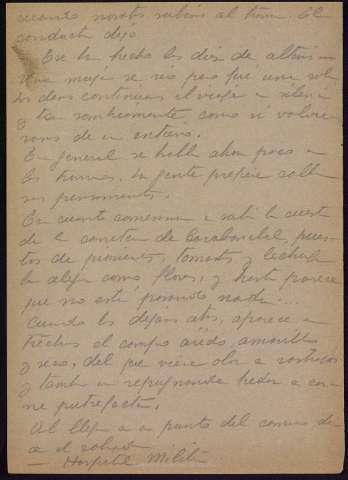 cuanto nosotros subimos al tranvía. El
conductor dijo
– Ese ha hecho los diez de
Una mujer se rió pero fué una sola
los demás continuaron el viaje en silencio
y tan sombriamente como si volvie-
ramos de un entierro.
En general se habla ahora poco en
los tranvias. La gente prefiere callar
sus pensamientos.
En cuanto comenzamos a subir la cuesta
de la carretera de Carabanchel, pues-
tos de pimientos, tomates y lechugas
la alegran como flores, y hasta parece
que no está pasando nada...
Cuando los dejamos atrás, aparece a
trechos el campo árido, amarillo
y seco, del que viene olor a rastrojos
y también un repugnante hedor a car-
ne putrefacta.
Al llegar a un punto del camino
el soldado
– Hospital Militar